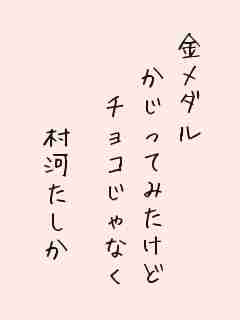 金メダル
かじってみたけど
チョコじゃなく
村河たしか